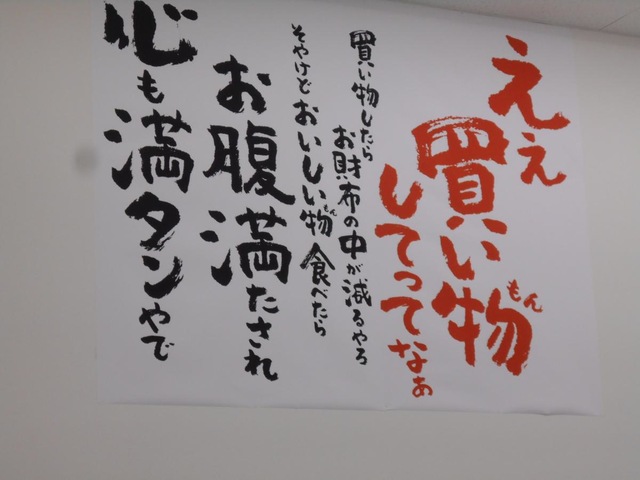 ええ
買い物
もん
してってなぁ
買い物したら
お財布の中が減るやろ
そやけどおいしい物食べたら
もん
お腹満たされ
心も満タンやで